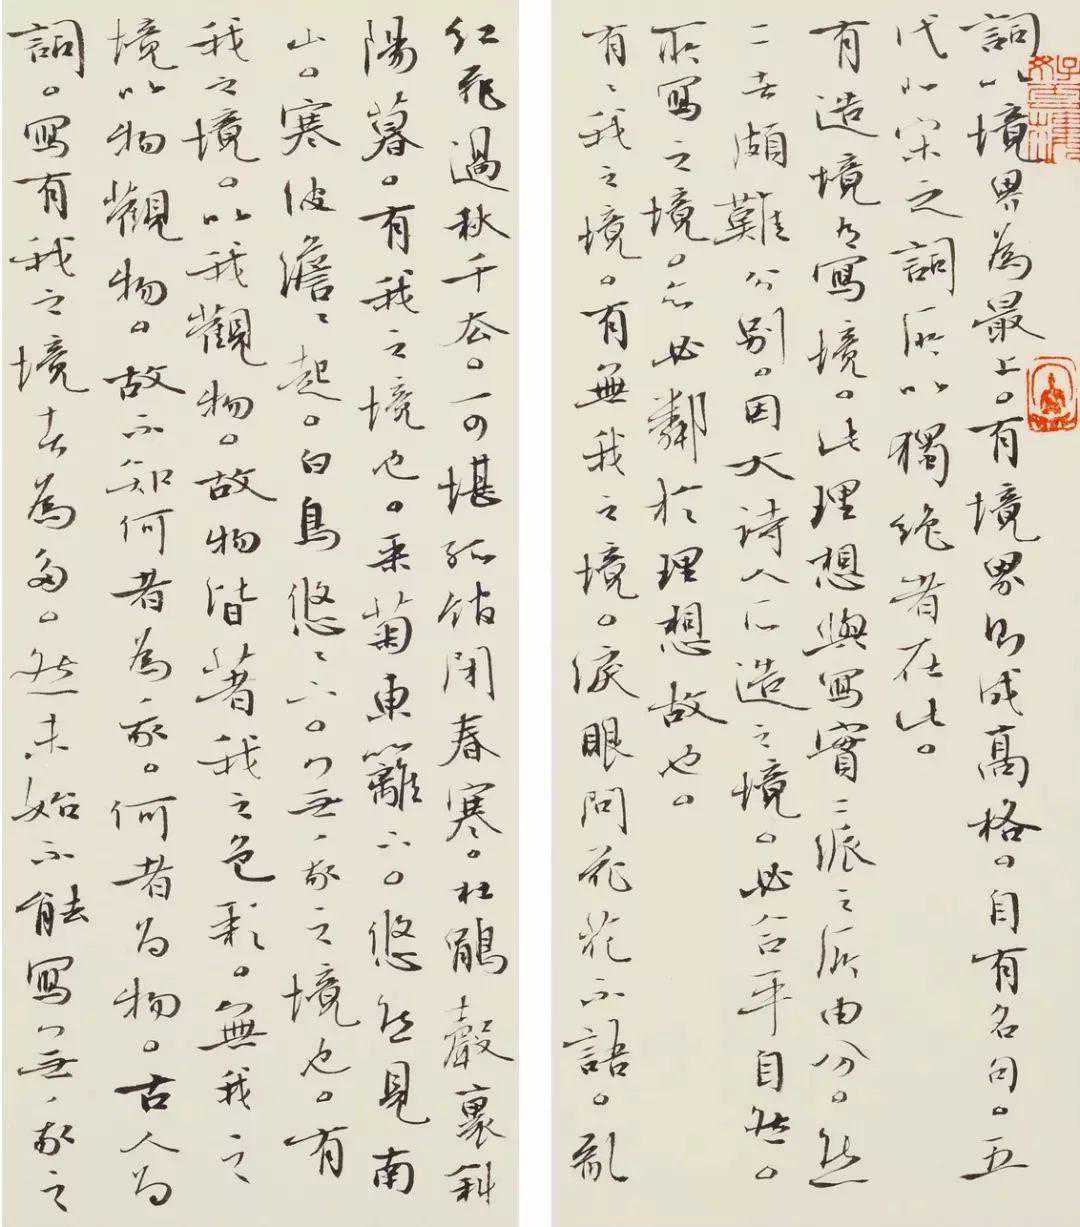 詞以境界為最上。有境界則成高格。自有名句。五
代北宋之詞所以獨絕者在此。
有造境有寫境。此理想與寫實二派之所由分。然
二者頗難分別。因大詩人所造之境。必合乎自然。
所寫之境。亦必鄰於理想故也。
有〻我之境。有無我之境。淚眼問花花不語。亂
紅飛過秋千去。可堪孤館閉春寒。杜鵑聲裏斜
陽暮。有我之境也。采菊東籬下。悠然見南
山。寒波澹〻起。白鳥悠〻下。無我之境也。有
我之境。以我觀物。故物皆著我之色彩。無我之
境以物觀物。故不知何者為我。何者為物。古人為
詞。寫有我之境者為多。然未始不能寫無我之